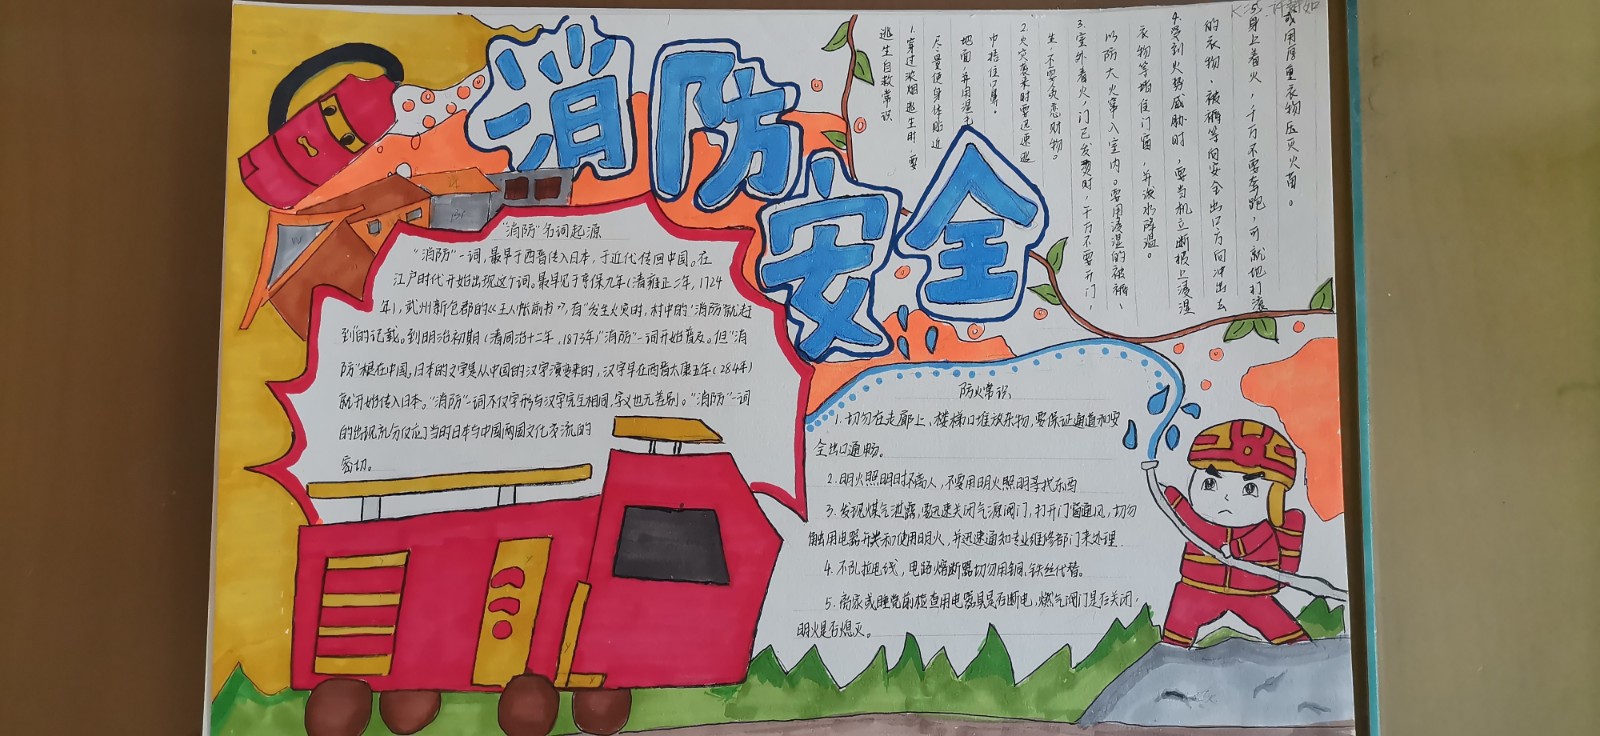 消防
安全
逃生自救常识
1.穿过浓烟逃生时,要
尽量使身体贴近
地面,并用湿毛
巾捂住口鼻。
2.火灾袭来时要迅速逃
生,不要贪恋财物。
3.室外着火,门已发烫时,千万不要开门,
以防大火窜入室内。要用浸湿的被褥、
衣物等堵住门窗,并泼水降温。
4.受到火势威胁时,要当机立断披上浸湿
的衣物、被褥等向安全出口方向冲出去
5.身上着火,千万不要奔跑,可就地打滚
或用厚重衣物压灭火苗。
"消防"名词起源
"消防"一词,最早于西晋传入日本,于近代传回中国。在
江户时代开始出现这个词。最早见于亨保九年(清雍正二年,1724
年),武州新仓郡的《王人帐前书》,有"发生火灾时,村中的'消防'就赶
到"的记载。到明治初期(清同治十二年,1873年)"消防"一词开始普及。但"消
防"根在中国。日本的文字是从中国的汉字演变来的,汉字早在西晋太康五年(284年)
就开始传入日本。"消防"一词不仅字形与汉字完全相同,字义也无差别。"消防"一词
的出现充分反应了当时日本与中国两国文化交流的
密切。
防火常识
1.切勿在走廊上、楼梯口堆放杂物,要保证通道和安
全出口通畅。
2.明火照明时不离人,不要用明火照明寻找东西
3.发现煤气泄露,要迅速关闭气源阀门,打开门窗通风,切勿
触用电器开关和使用明火,并迅速通知专业维修部门来处理
4.不乱拉电线,电路熔断器切勿用铜、铁丝代替。
5.离家或睡觉前检查用电器具是否断电,燃气阀门是否关闭,
明火是否熄灭。